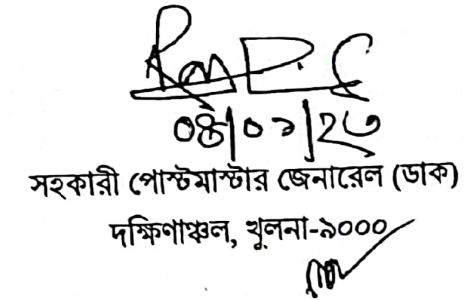 ০৪/০১/২৩
সহকারী পোস্টমাস্টার জেনারেল (ডাক)
দক্ষিণাঞ্চল, খুলনা-৯০০০